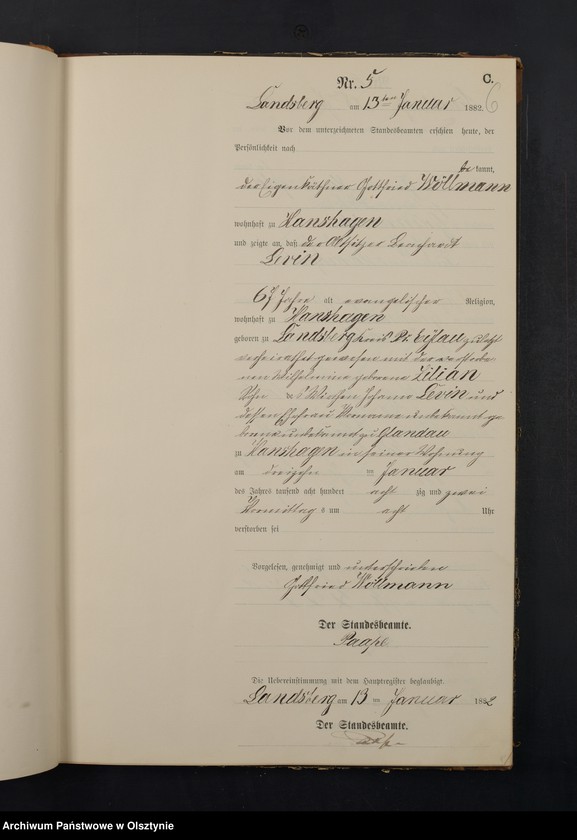 C.
6
Nr. 5
Landsberg am 13ten Januar 1882.
Vor dem unterzeichneten Standesbeamten erschien heute, der
Persönlichkeit nach
be kannt,
der Eigenkäthner Gottfried Wöllmann
wohnhaft zu Hanshagen
und zeigte an, daß der Altsitzer Leonhardt
Levin
67 Jahre alt evangelischer Religion,
wohnhaft zu Hanshagen
geboren zu Landsberg Kreis Pr. Eylau zuletzt
verheirathet gewesen mit der verstorbe
nen Wilhelmine geborene Zilian
Sohn des Johann Levin und
dessen Ehefrau unbekannt ge
unbekannt zu Glandau
zu Hanshagen in seiner Wohnung
am dreizehn ten Januar
des Jahres tausend acht hundert acht zig und zwei
Vormittag s um acht Uhr
verstorben sei
Vorgelesen, genehmigt und unterschrieben
Gottfried Wöllmann
Der Standesbeamte.
Die Uebereinstimmung mit dem Hauptregister beglaubigt.
Landsberg am 13 ten Januar 1882
Der Standesbeamte.
Archiwum Państwowe w Olsztynie